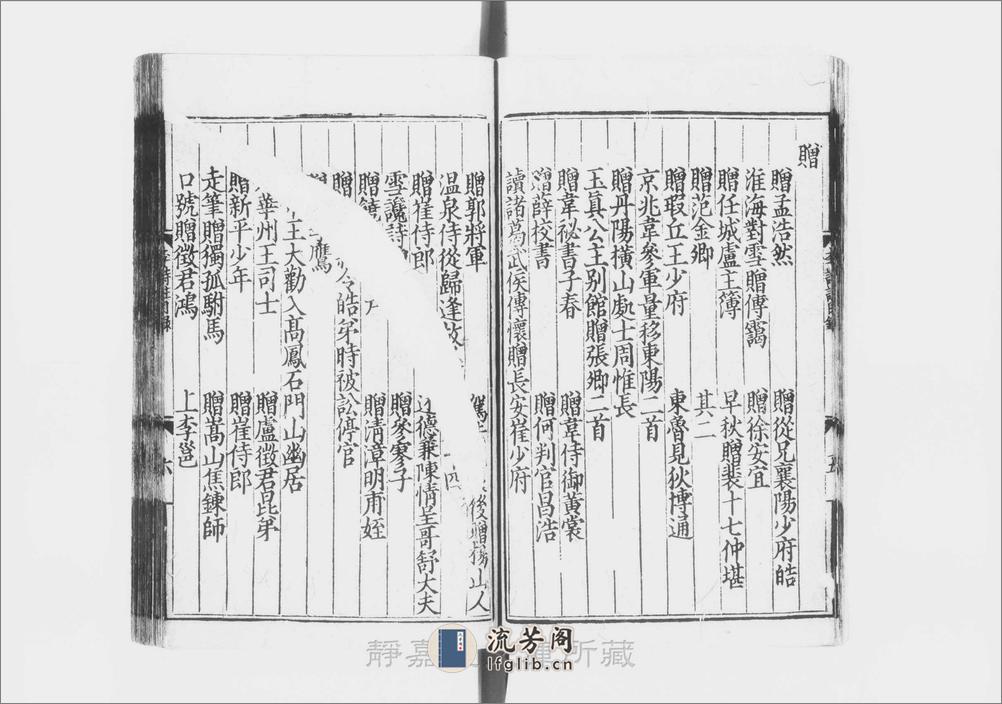 贈
贈孟浩然 贈從兄襄陽少府皓
淮海對雪贈傅靄 贈徐安宜
贈任城盧主簿 早秋贈裴十七仲堪
贈范金卿 其二
贈瑕丘王少府 東魯見狄博通
京兆韋參軍量移東陽二首
贈丹陽橫山處士周惟長
玉真公主別館贈張卿二首
贈韋祕書子春 贈韋侍御黃裳
贈薛校書 贈何判官昌浩
讀諸葛武侯傳懷贈長安崔少府
贈郭將軍 後贈楊山人
溫泉侍從歸逢故
贈崔侍郎 述德兼陳情呈哥舒大夫
雪讒詩 贈參寥子
贈 贈清漳明甫姪
贈 令皓弟時被訟停官
贈 鷹
王大勸入高鳳石門山幽居
華州王司士 贈盧徵君昆弟
贈新平少年 贈崔侍郎
走筆贈獨孤駙馬 贈嵩山焦鍊師
口號贈徵君鴻 上李邕
六
流芳阁
lfglib.cn
靜嘉 所藏